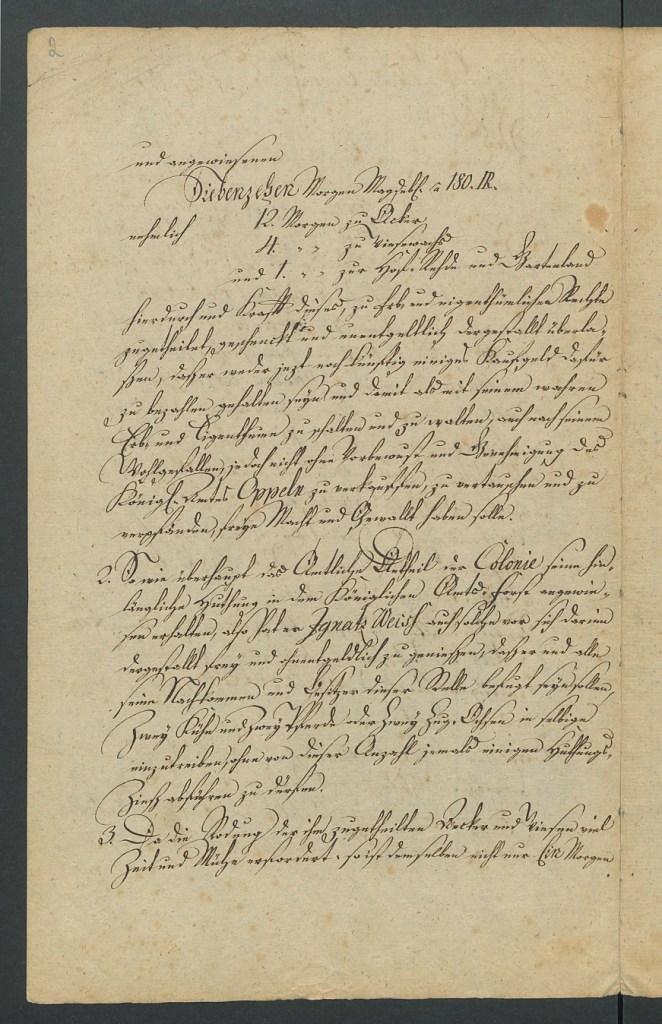 2
und angewiesenen
Siebenzehen Morgen Magdeb. a 180. IR.
nehmlich 12. Morgen zu Acker
4. " " zu Wiesewachs
und 1. " " zur Hof-Rehde und Gartenland
hierdurch und Kraft dieses, zu Erb und eigenthümlichen Rechte
zugetheilet, geschenckt und unentgeltlich dergestallt überla-
ßen, daß er weder jezt noch künftig einiges Kaufgeld dafür
zu bezahlen gehalten seyn und damit als mit seinem wahren
Erb- und Eigenthum zu schalten und zu walten, auch nach seinem
Wohlgefallen, jedoch nicht ohne Vorbewust und Genehmigung des
Königl. Amtes Oppeln zu verkauffen, zu vertauschen und zu
verpfänden, freye Macht und Gewallt haben solle.
2. So wie überhaupt das Amtliche Antheil der Colonie seine hin-
längliche Huthung in dem Königlichen Amts-Forst angewie-
sen erhalten, also hat er Ignatz Weiss auch solche vor sich darinn
dergestallt frey und ohnentgeldlich zu genießen, daß er und alle
seine Nachkommen und Besitzer dieser Stelle befugt seyn sollen,
Zwey Kühe und zwey Pferde oder zwey Zug-Ochsen in selbige
einzutreiben, ohne von dieser Anzahl jemals einigen Huthungs-
Zinß abführen zu dürfen.
3. Da die Rodung der ihm zugetheilten Aecker und Wiesen viel
Zeit und Mühe erfordert, so ist demselben nicht nur Ein Morgen